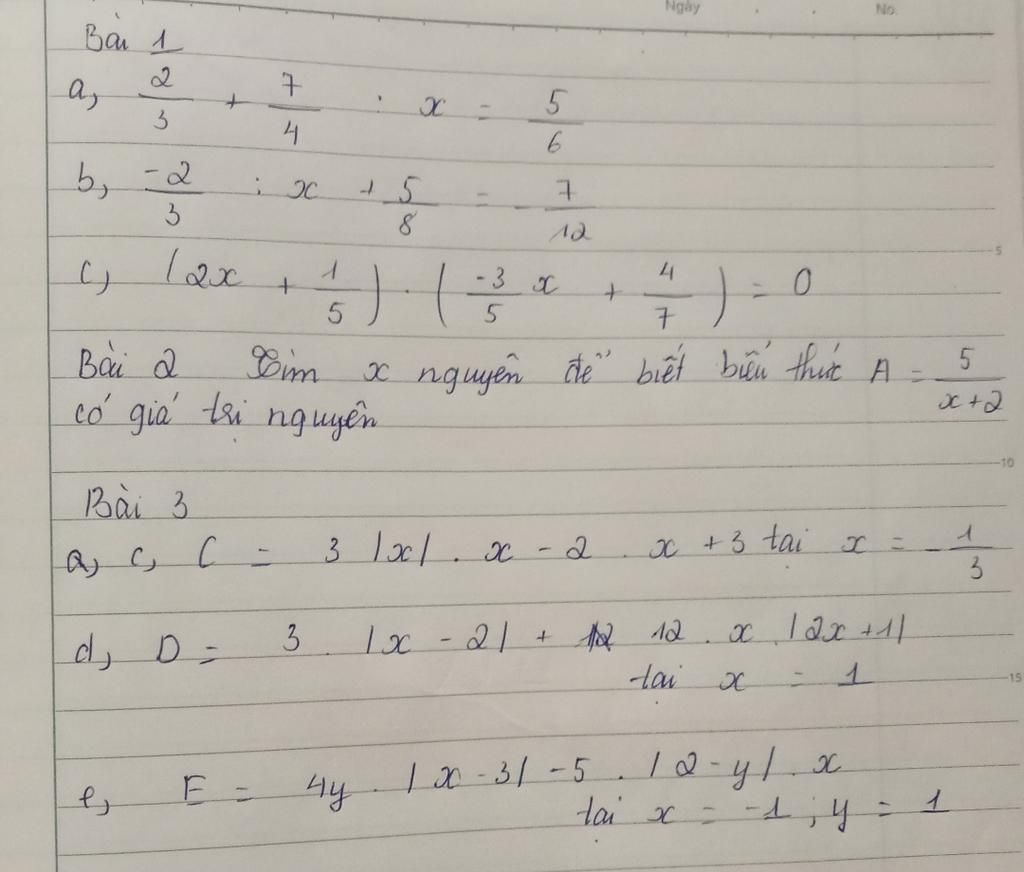 Ngày . . No.
Bài 1
a, 2/3 + 7/4 : x = 5/6
b, -2/3 : x + 5/8 = -7/12
c, (2x + 1/5) . (-3/5 x + 4/7) = 0
5
Bài 2 Tìm x nguyên để biết biểu thức A = 5/(x+2)
có giá trị nguyên
10
Bài 3
a, c, C = 3 |x| . x - 2 . x + 3 tại x = -1/3
d, D = 3 . |x - 2| + 12 12 . x . |2x + 1|
tai x = 1
15
e, E = 4y . |x - 3| - 5 . |2 - y| . x
tai x = -1 ; y = 1